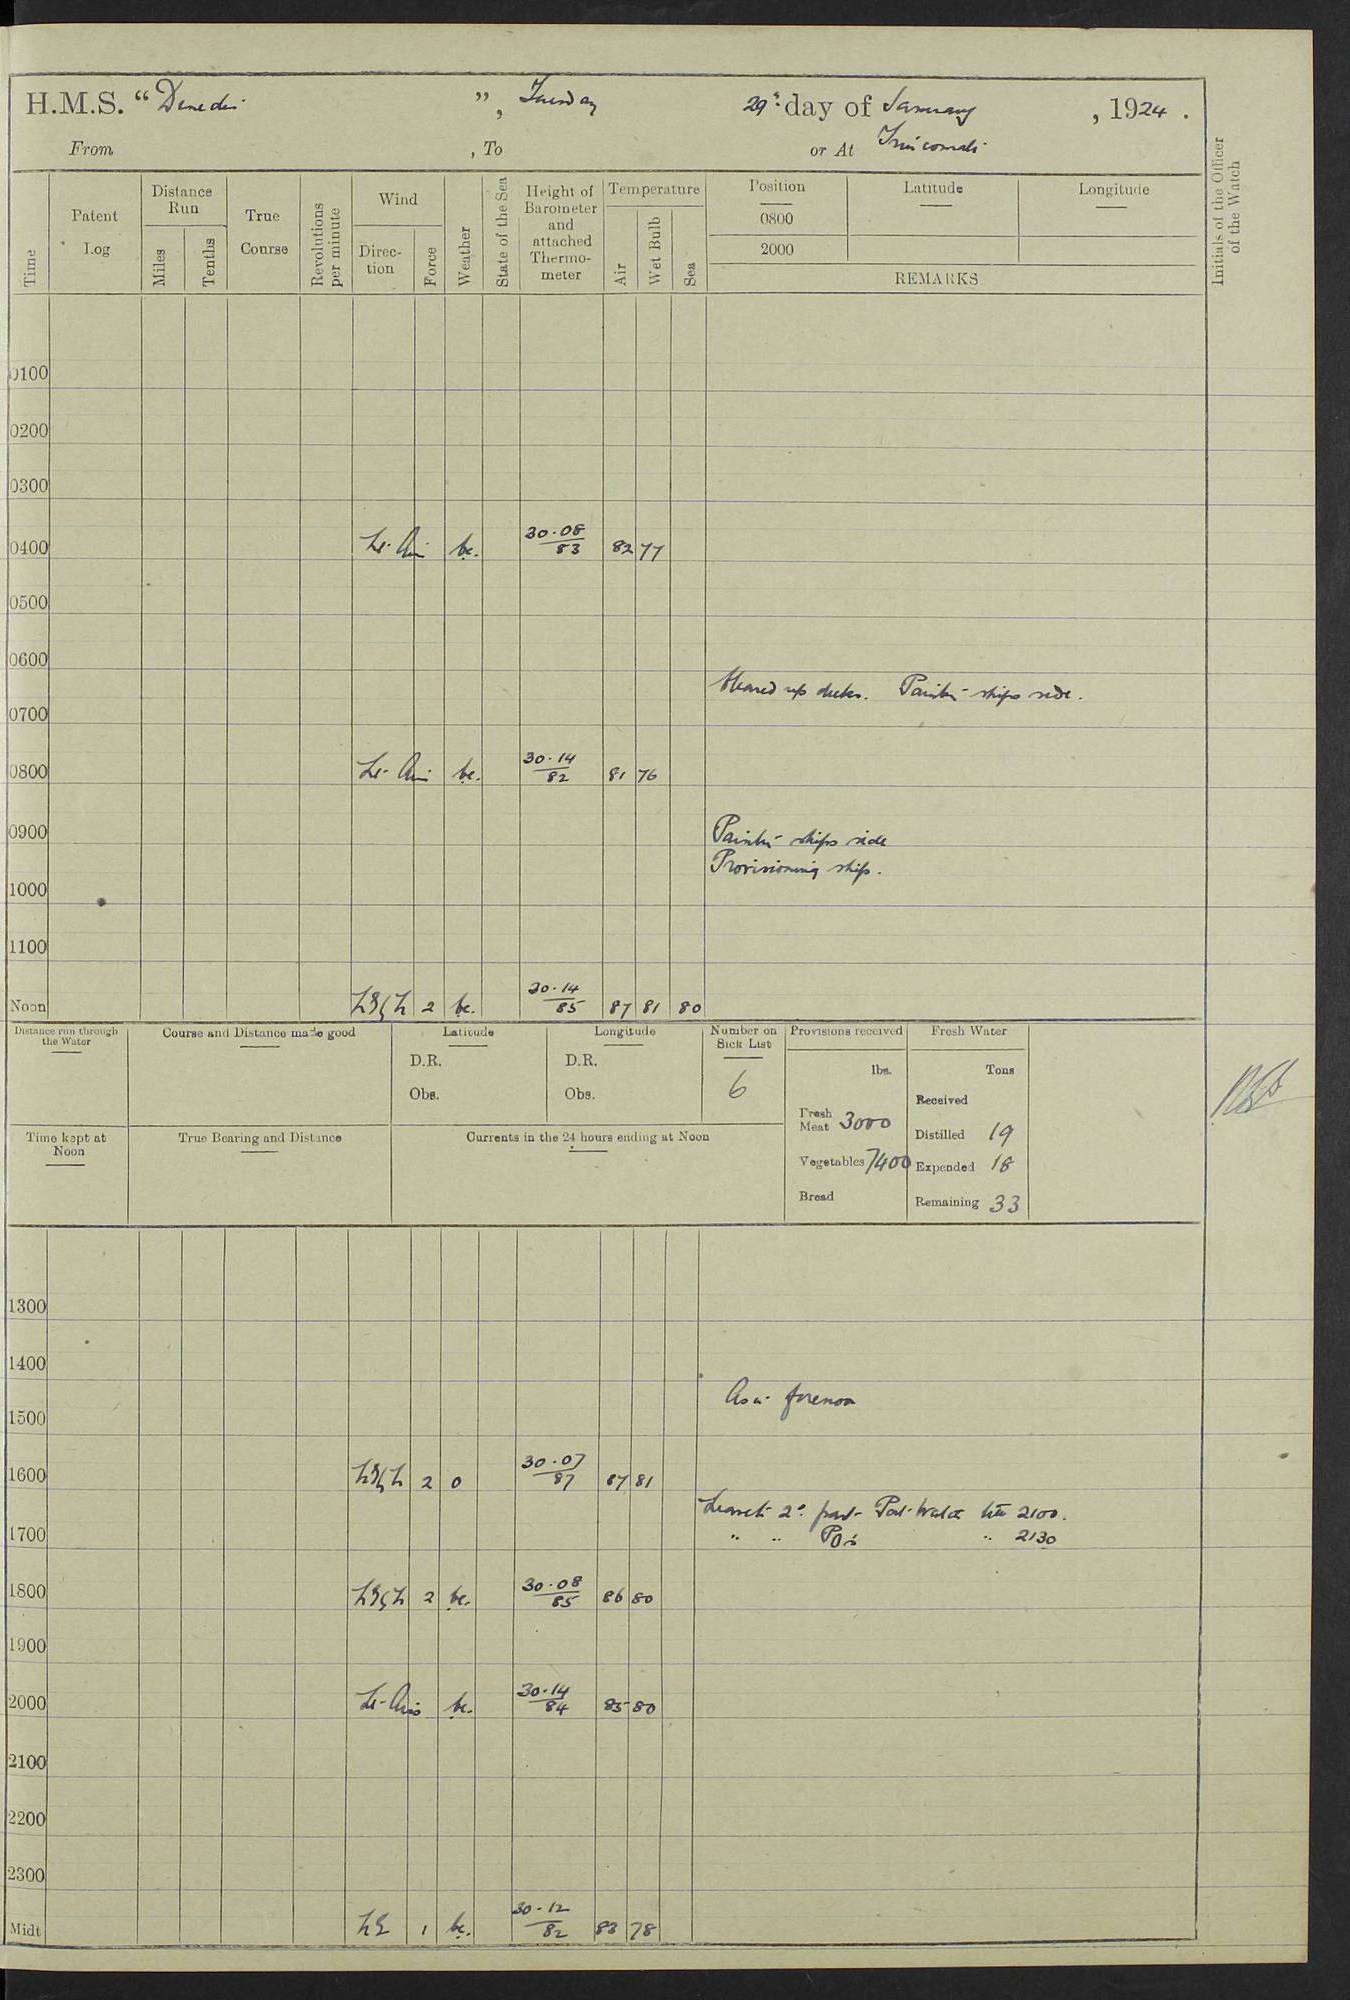 H.M.S. “Dunedin”, Tuesday 29th day of January, 1924.
From , To or At Trincomali
Time
Patent Log
Distance Run
Miles
Tenths
True Course
Revolutions per minute
Wind
Direction
Force
Weather
State of the Sea
Height of Barometer and attached Thermometer
Temperature
Air
Wet Bulb
Sea
Position
Latitude
Longitude
0800
2000
REMARKS
Initials of the Officer of the Watch
0100
0200
0300
0400 Lt. Airs bc. 30.08 83 82 77
0500
0600
Cleared up decks. Paintg ships side.
0700
0800 Lt. Airs bc. 30.14 82 81 76
0900 Paintg ships side
Provisioning ship.
1000
1100
Noon 2 bc. 30.14 85 87 81 80
Distance run through the Water
Course and Distance made good
Latitude
D.R.
Obs.
Longitude
D.R.
Obs.
Number on Sick List
6
Provisions received
lbs.
Fresh Meat 3000
Vegetables 7400
Bread
Fresh Water
Tons
Received
Distilled 19
Expended 18
Remaining 33
Time kept at Noon
True Bearing and Distance
Currents in the 24 hours ending at Noon
1300
1400
As in forenoon
1500
1600 2 o 30.07 87 87 81
Leave to 2nd part Port Watch till 2100.
1700 " " POs " 2130
1800 2 bc. 30.08 85 86 80
1900
2000 Lt. Airs bc. 30.14 84 85 80
2100
2200
2300
Midt NE 1 bc. 30.12 82 83 78